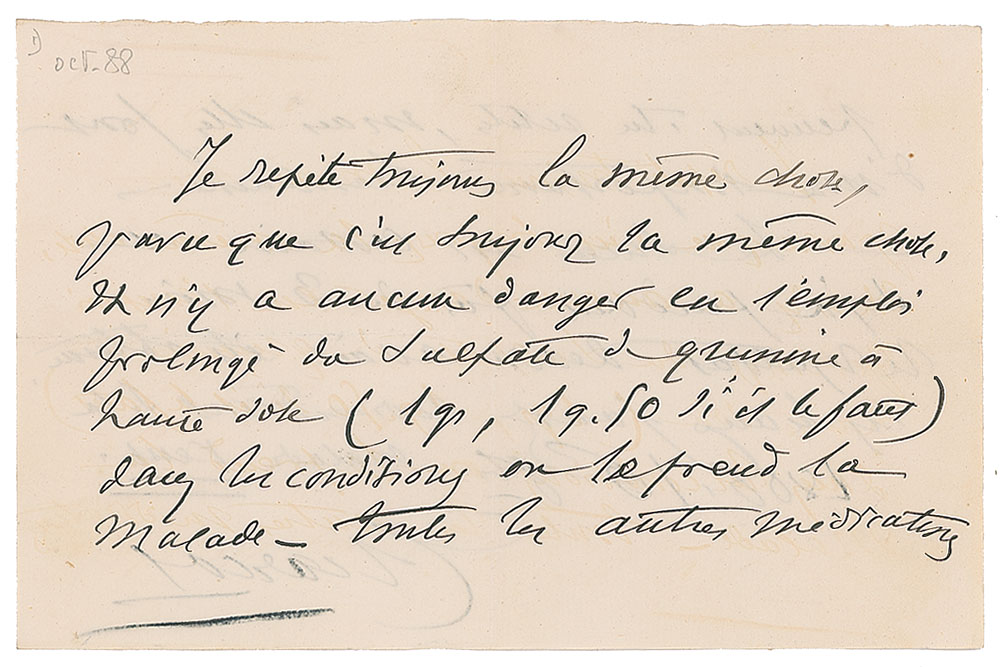 1)
oct-88
Je repète toujours la même chose,
parce que c'est toujours la même chose,
Il n'y a aucun danger en l'emploi
prolongé du Sulfate de quinine à
haute dose (1gr, 1g.50 s'il le faut)
dans les conditions où le prend la
malade — toutes les autres médications